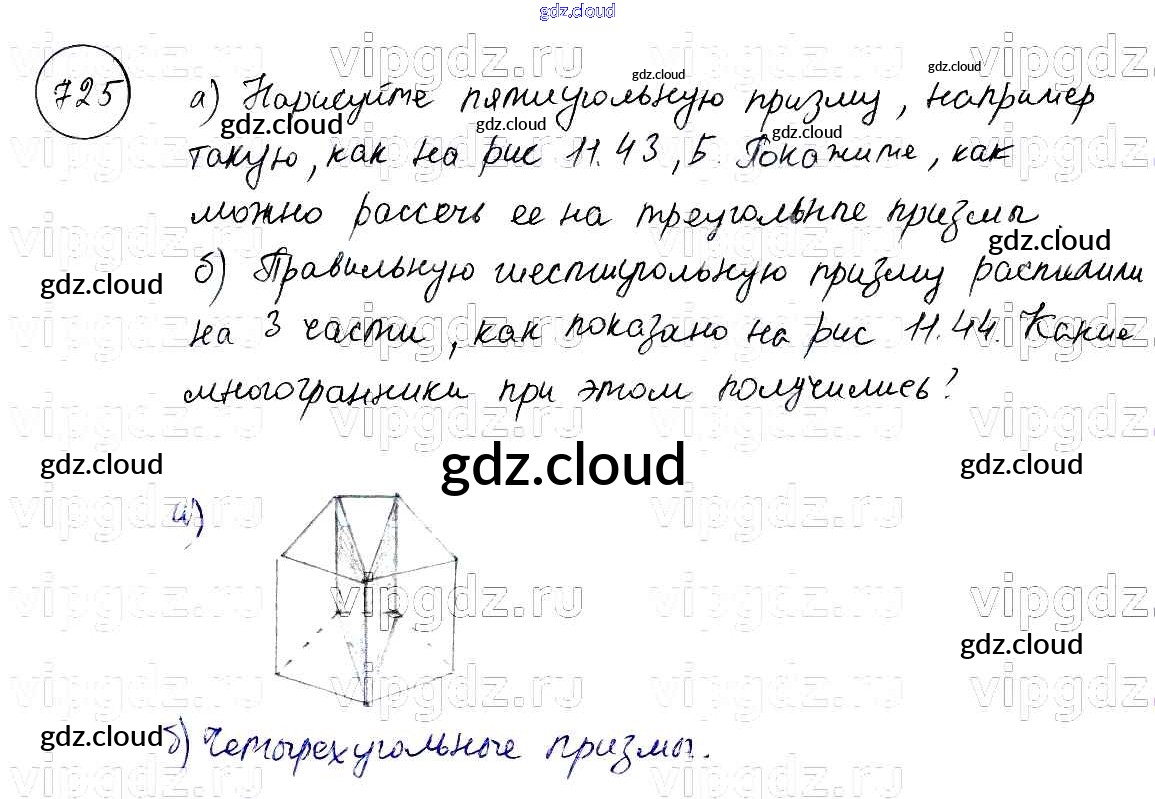 gdz.cloud
725
а) Нарисуйте пятиугольную призму, например
такую, как на рис 11.43, Б. Покажите, как
можно рассечь ее на треугольные призмы.
б) Правильную шестиугольную призму распилили
на 3 части, как показано на рис 11.44. Какие
многогранники при этом получились?
gdz.cloud
а)
б) Четырехугольные призмы.
vipgdz.ru